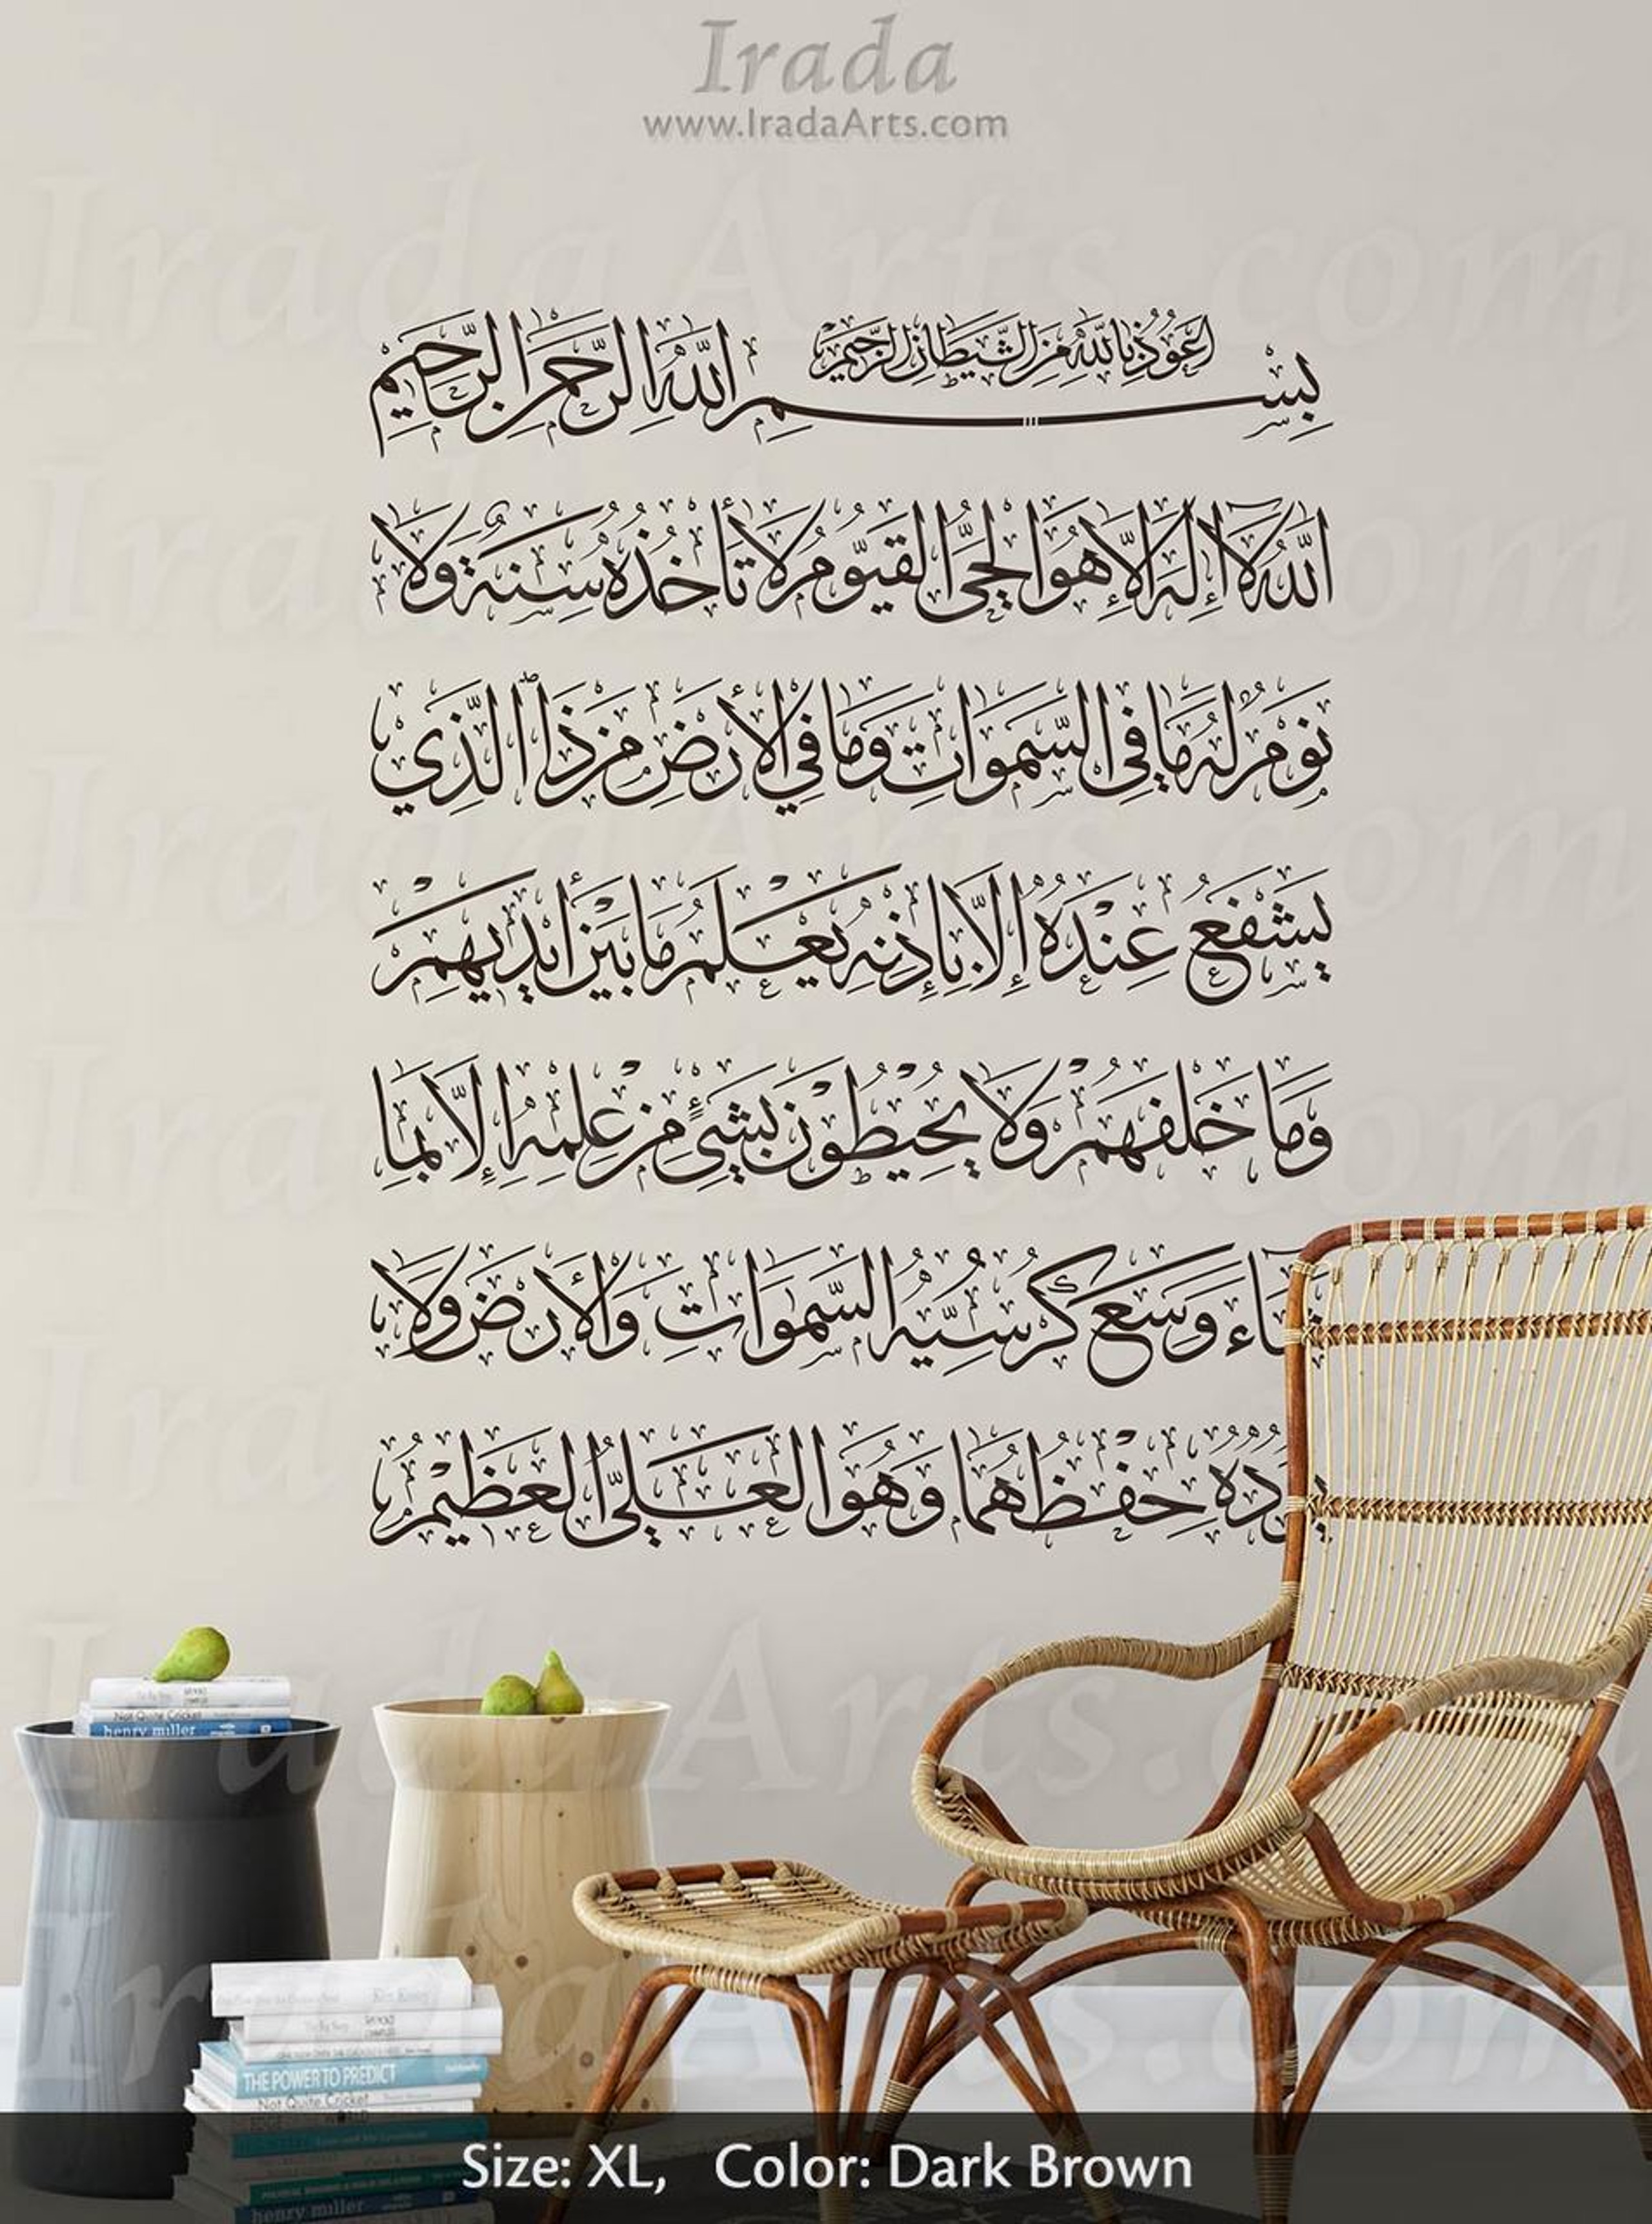 Irada
www.IradaArts.com
اعوذ بالله من الشيطان الرجيم
بسم الله الرحمن الرحيم
الله لا إله إلا هو الحي القيوم لا تأخذه سنة ولا
نوم له ما في السموات وما في الأرض من ذا الذي
يشفع عنده إلا بإذنه يعلم ما بين أيديهم
وما خلفهم ولا يحيطون بشيء من علمه إلا بما
وسع كرسيه السموات والأرض ولا
حفظهما وهو العلي العظيم
Not Quite Cricket
henry miller
THE POWER TO PREDICT
Not Quite Cricket
henry miller
Size: XL, Color: Dark Brown